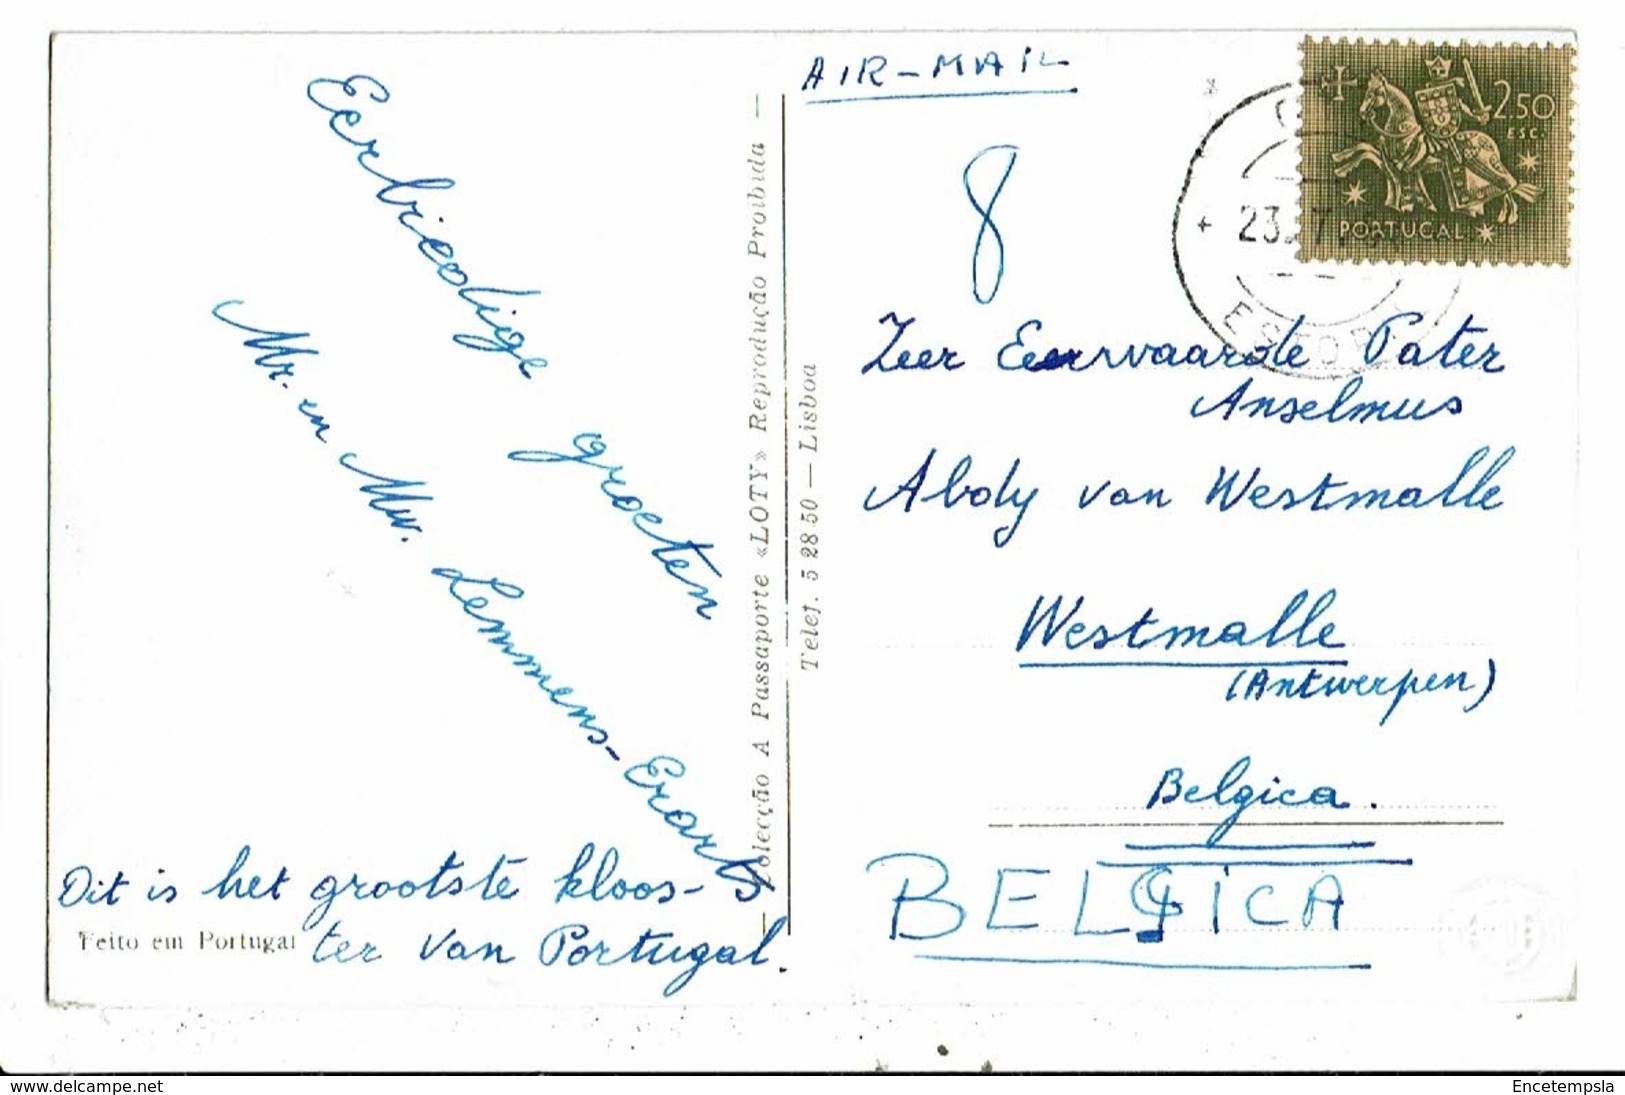 AIR-MAIL
8
2$50
ESC.
PORTUGAL
23. 7
ESTORIL
Eerbiedige groeten
Mr. en Mw. Lemmens-Eraerts
Dit is het grootste kloos-
ter van Portugal.
Feito em Portugal
Colecção A Passaporte «LOTY» Reprodução Proibida —
Telef. 5 28 50 — Lisboa
Zeer Eerwaarde Pater
Anselmus
Abdy van Westmalle
Westmalle
(Antwerpen)
Belgica.
BELGICA
www.delcampe.net
Encetempsla